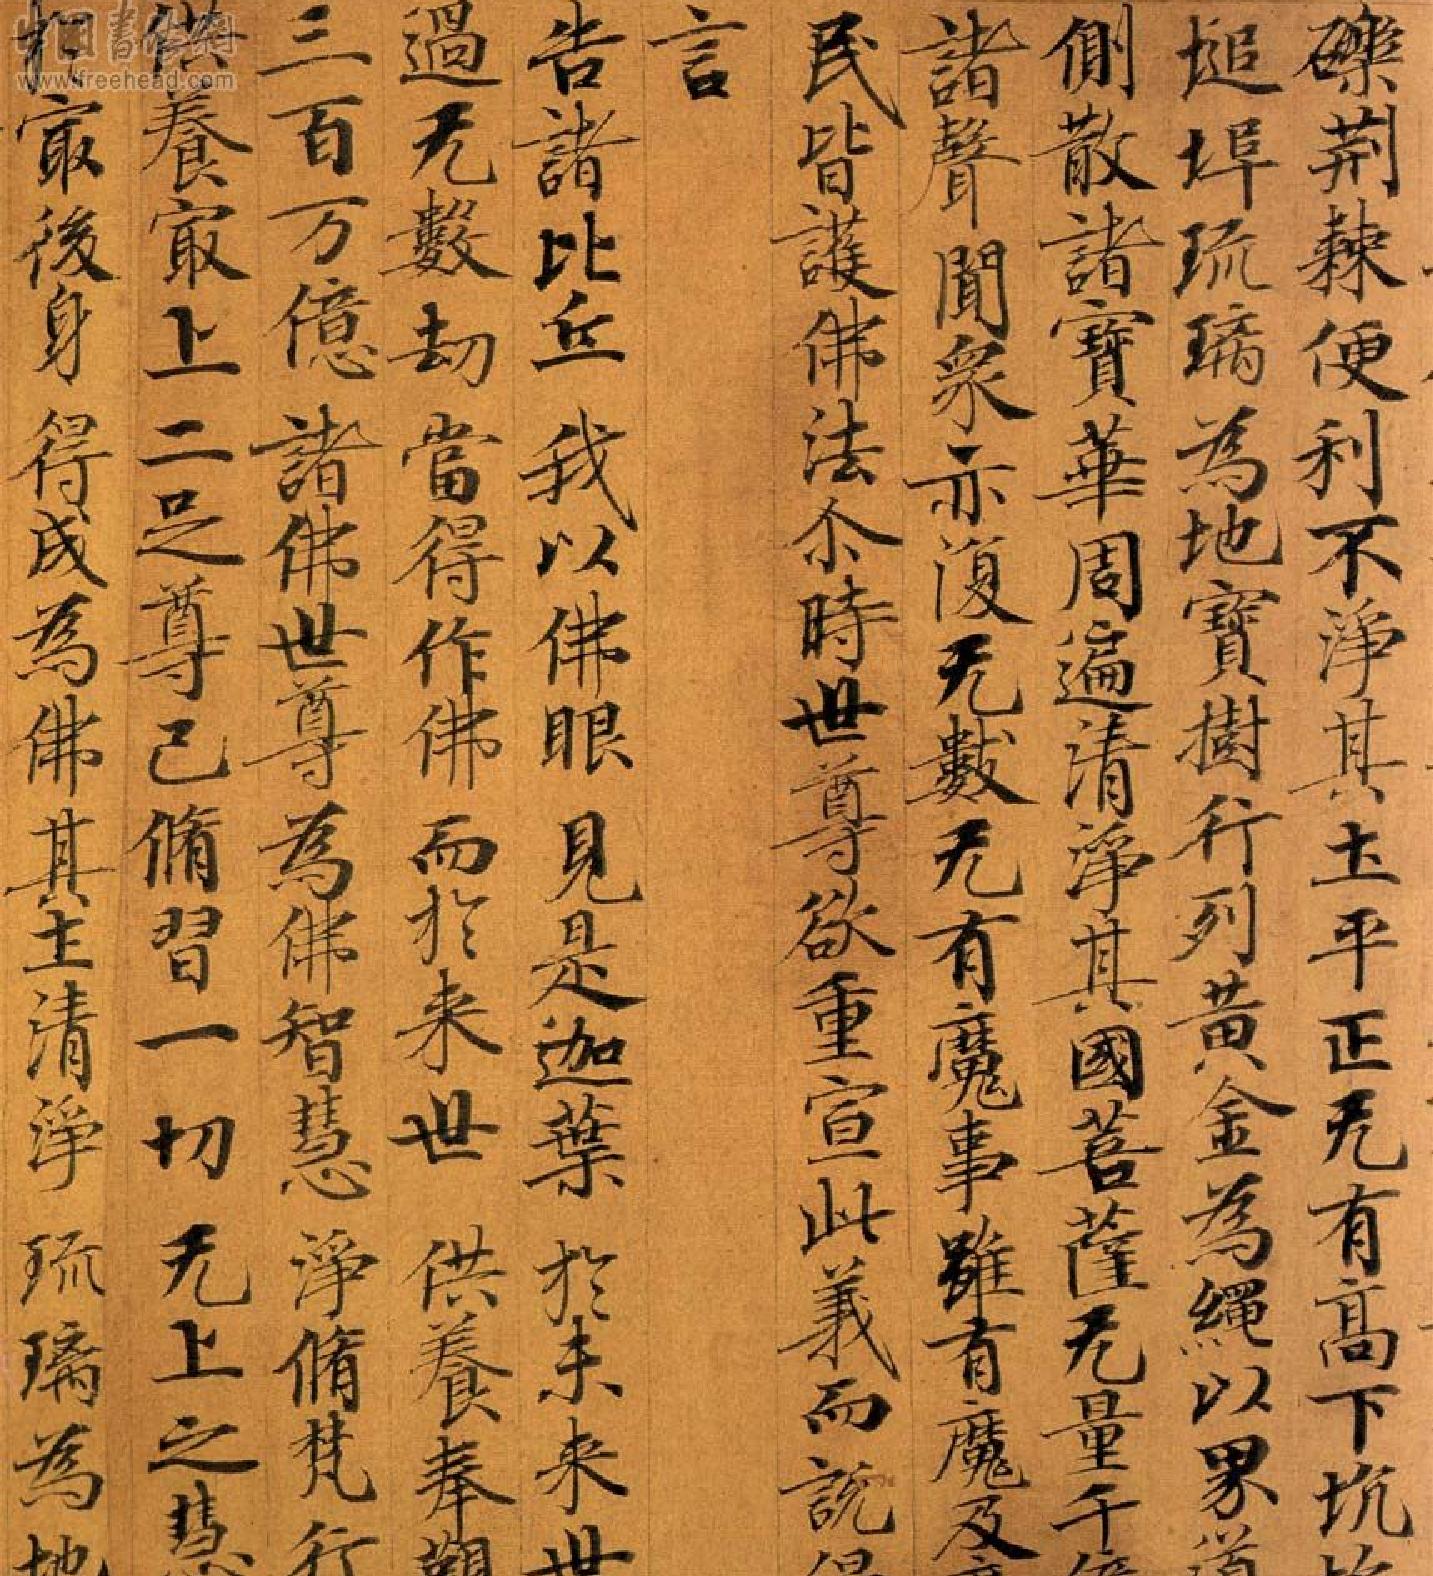 礫荊棘便利不淨其土平正无有高下坑
塠埠琉璃為地寶樹行列黃金為繩以界道
側散諸寶華周遍清淨其國菩薩无量千億
諸聲聞衆亦復无數无有魔事雖有魔及
民皆護佛法尒時世尊欲重宣此義而說
言
告諸比丘 我以佛眼 見是迦葉 於未来世
過无數劫 當得作佛 而於来世 供養奉覲
三百万億 諸佛世尊 為佛智慧 淨脩梵行
供養㝡上 二足尊已 脩習一切 无上之慧
㝡後身 得成為佛 其土清淨 琉璃為地
中国书法網
www.freehead.com